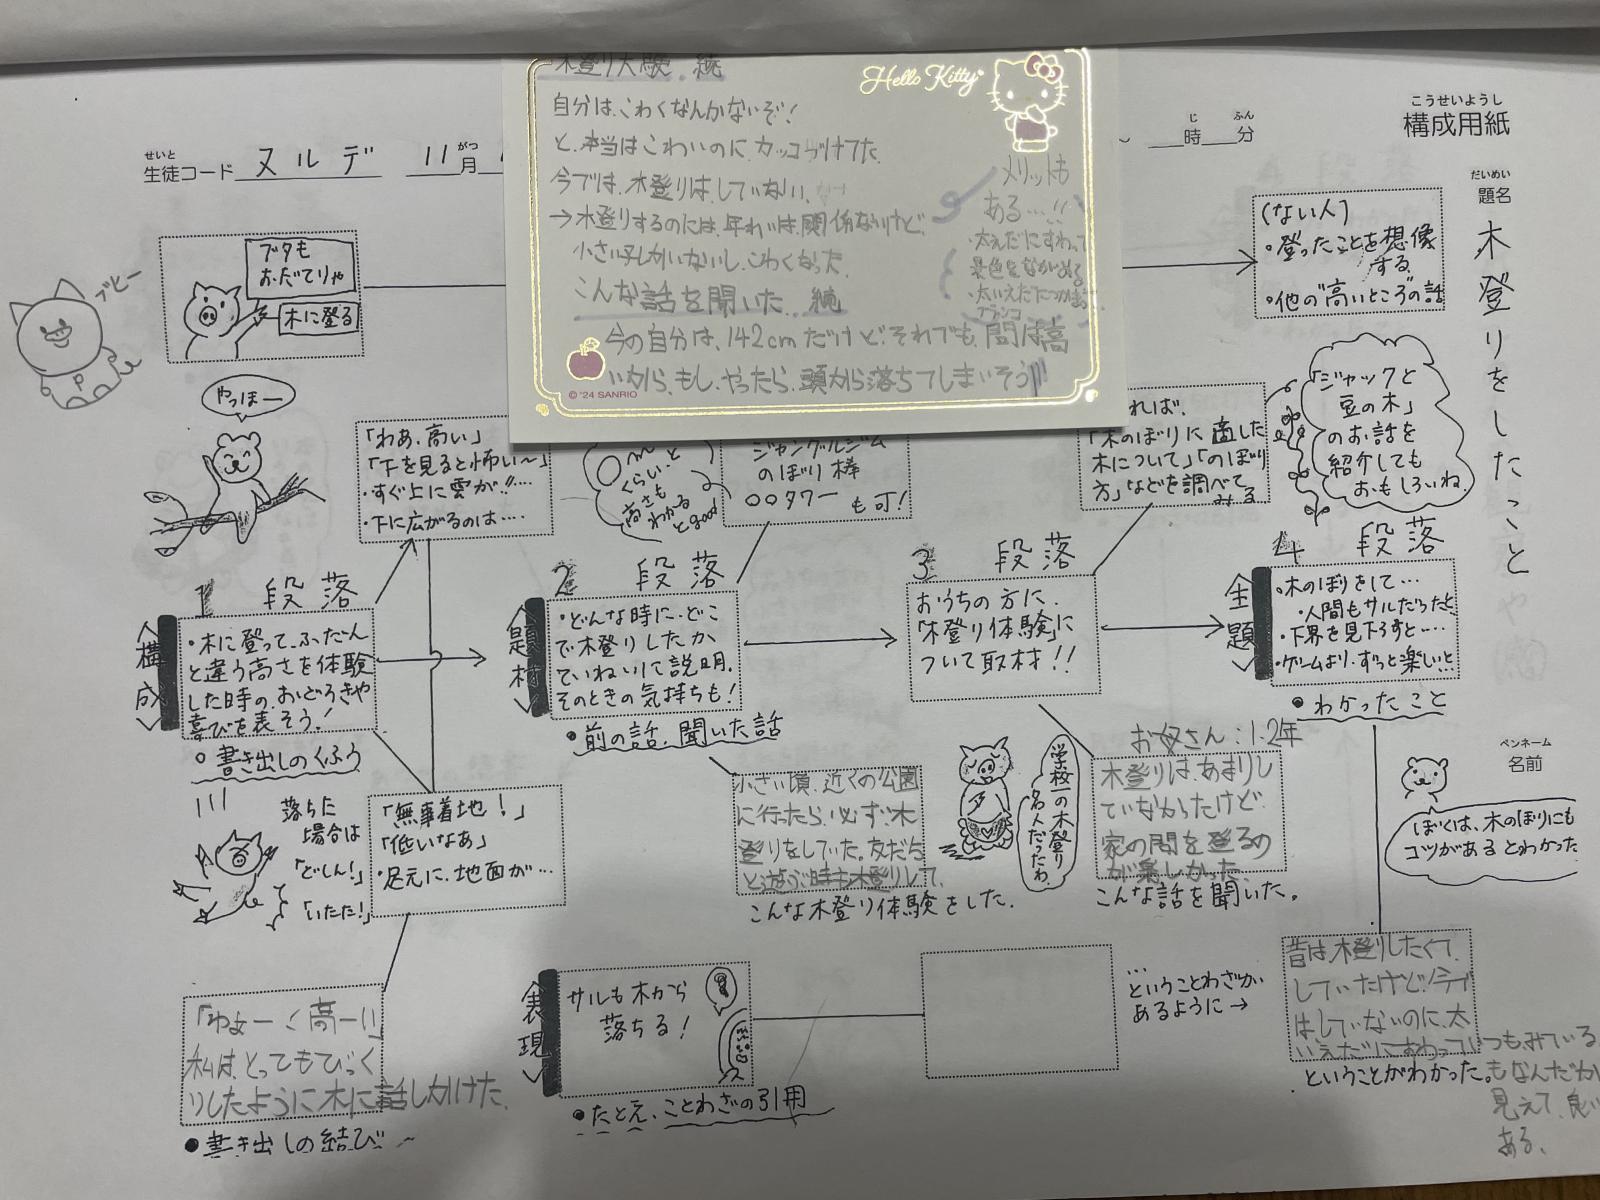 こうせいようし
構成用紙
せいと
生徒コード ヌルデ 11月
がつ
〜 時 分
じ ふん
だいめい
題名
木登りをしたこと
ペンネーム
名前
木登り大験 続
Hello Kitty
自分は、こわくなんかないぞ!
と、本当はこわいのに、カッコづけてた。
今では、木登りはしていない。
→木登りするのには、年れいは、関係ないけど、
小さい子しかいないし、こわくなった。
こんな話を聞いた 続
今の自分は、142cmだけど、それでも、間は高
いから、もし、やったら、頭から落ちてしまいそう!!
メリットも
ある…!!
・太えだにすわって
景色をながめる
・太いえだにつかま
ブランコ
© '24 SANRIO
ブヒー
ブタも
おだてりゃ
木に登る
(ない人)
・登ったことを想像
する
・他の"高いところ"の話
やっほー
「わあ、高い」
「下を見ると怖い〜」
・すぐ上に雲が!!…
・下に広がるのは…
〇m
くらい、と
高さも
わかる
とgood
ジャングルジム
のぼり棒
〇〇タワー
も可!
れば、
「木のぼりに適した
木について」「のぼり
方」などを調べて
みる
「ジャックと
豆の木」
のお話を
紹介しても
おもしろいね。
1 段落
〈構成〉
・木に登って、ふだん
と違う高さを体験
した時の、おどろきや
喜びを表そう!
・書き出しのくふう
2 段落
〈題材〉
・どんな時に・どこ
で木登りしたか
ていねいに説明。
そのときの気持ちも!
・前の話、聞いた話
3 段落
おうちの方に、
「木登り体験」に
ついて取材!!
4 段落
〈主題〉
・木のぼりをして…
・人間もサルだったと
・下界を見下ろすと…
・ゲームより、ずっと楽しいと
・わかったこと
落ちた
場合は
「どしん!」
「いたた!」
「無事着地!」
「低いなあ」
・足元に、地面が…
小さい頃、近くの公園
に行ったら、必ず、木
登りをしていた。友だち
と遊ぶ時も木登りして、
こんな木登り体験をした。
学校一の木登り
名人だったわ。
お母さん:1.2年
木登りは、あまりし
ていなかったけど
家の間を登るの
が楽しかった、
こんな話を聞いた。
ぼくは、木のぼりにも
コツがあるとわかった
「わぁーく高ーい」
私は、とってもびっく
りしたように木に話しかけた。
・書き出しの結び〜
〈表現〉
サルも木から
落ちる!
・たとえ、ことわざの引用
…
ということわざが
あるように→
昔は、木登りしたくて、
していたけど、今で
はしていないのに、太
いえだにすわって、いつもみている
ということがわかった。
見えて、良い
ある、